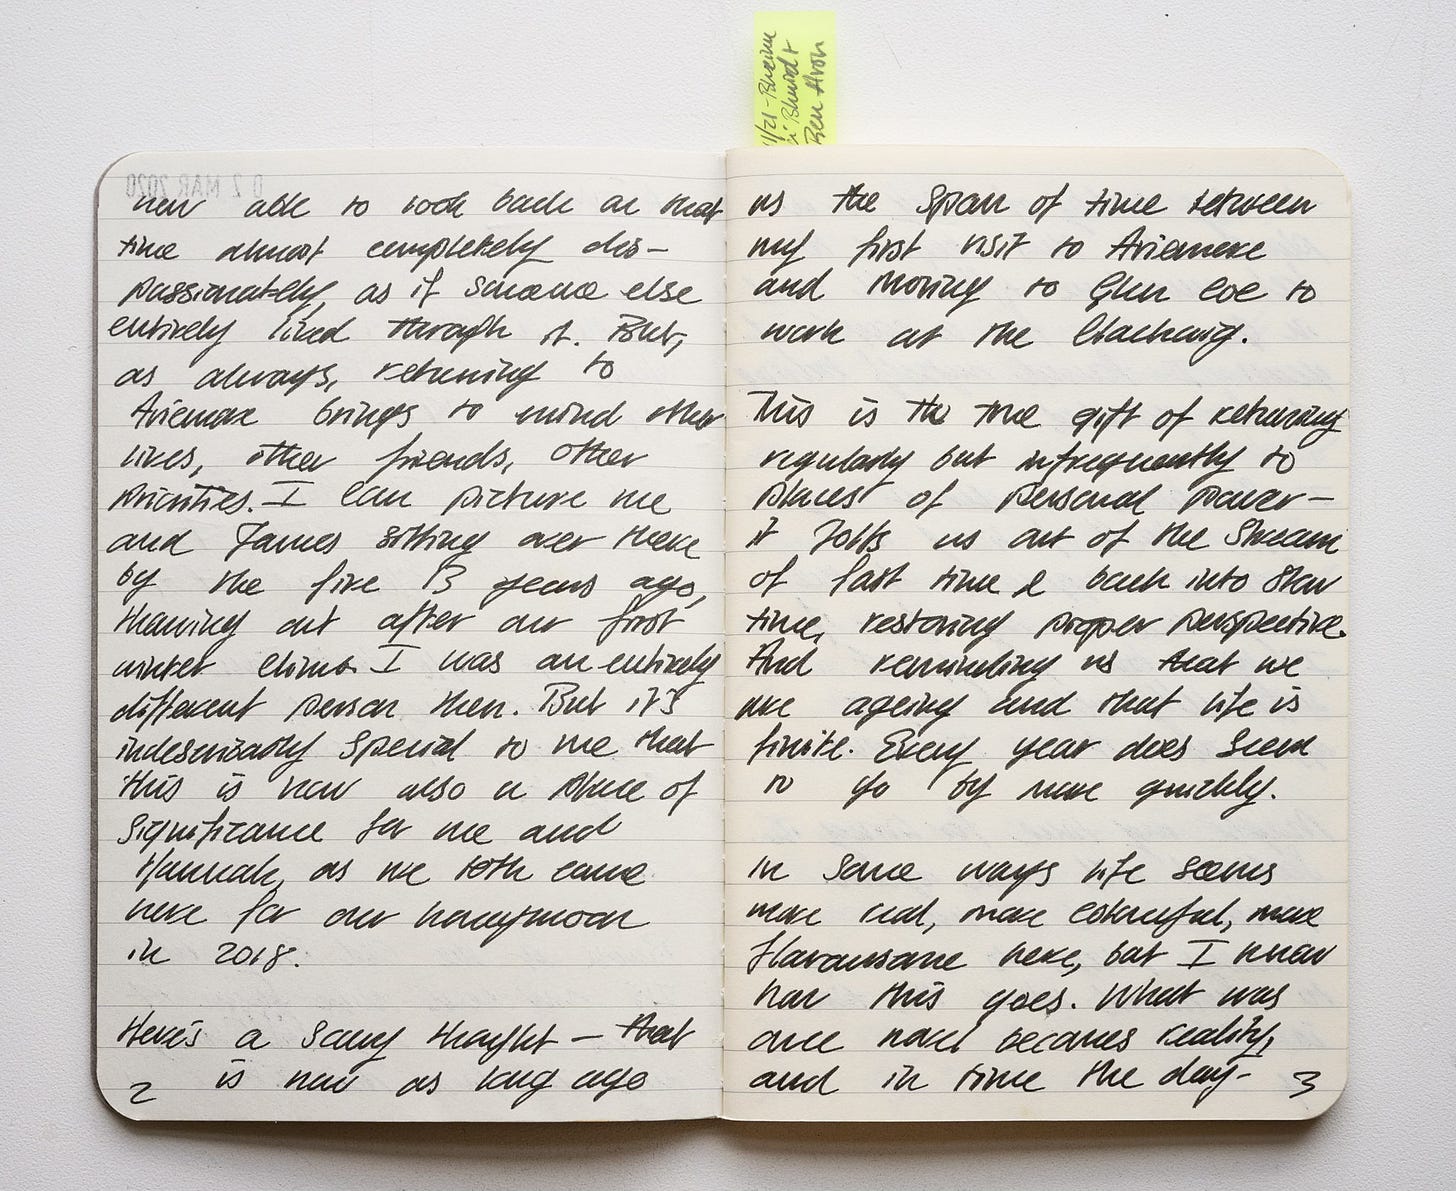 1/21 - Bheinn
Bhuird +
Ben Avon
02 MAR 2020
now able to look back on that
time almost completely dis-
passionately, as if someone else
entirely lived through it. But,
as always, returning to
Aviemore brings to mind other
lives, other friends, other
priorities. I can picture me
and James sitting over there
by the fire 13 years ago,
thawing out after our first
winter climb. I was an entirely
different person then. But it's
indescribably special to me that
this is now also a place of
significance for me and
Hannah, as we both came
here for our honeymoon
in 2018.
Here's a scary thought – that
is now as long ago
2
as the span of time between
my first visit to Aviemore
and moving to Glen Coe to
work at the Clachaig.
This is the true gift of returning
regularly but infrequently to
places of personal power –
it jolts us out of the stream
of fast time & back into slow
time, restoring proper perspective.
And reminding us that we
are ageing and that life is
finite. Every year does seem
to go by more quickly.
In some ways life seems
more real, more colourful, more
flavoursome here, but I know
how this goes. What was
once novel becomes reality,
and in time the day-
3